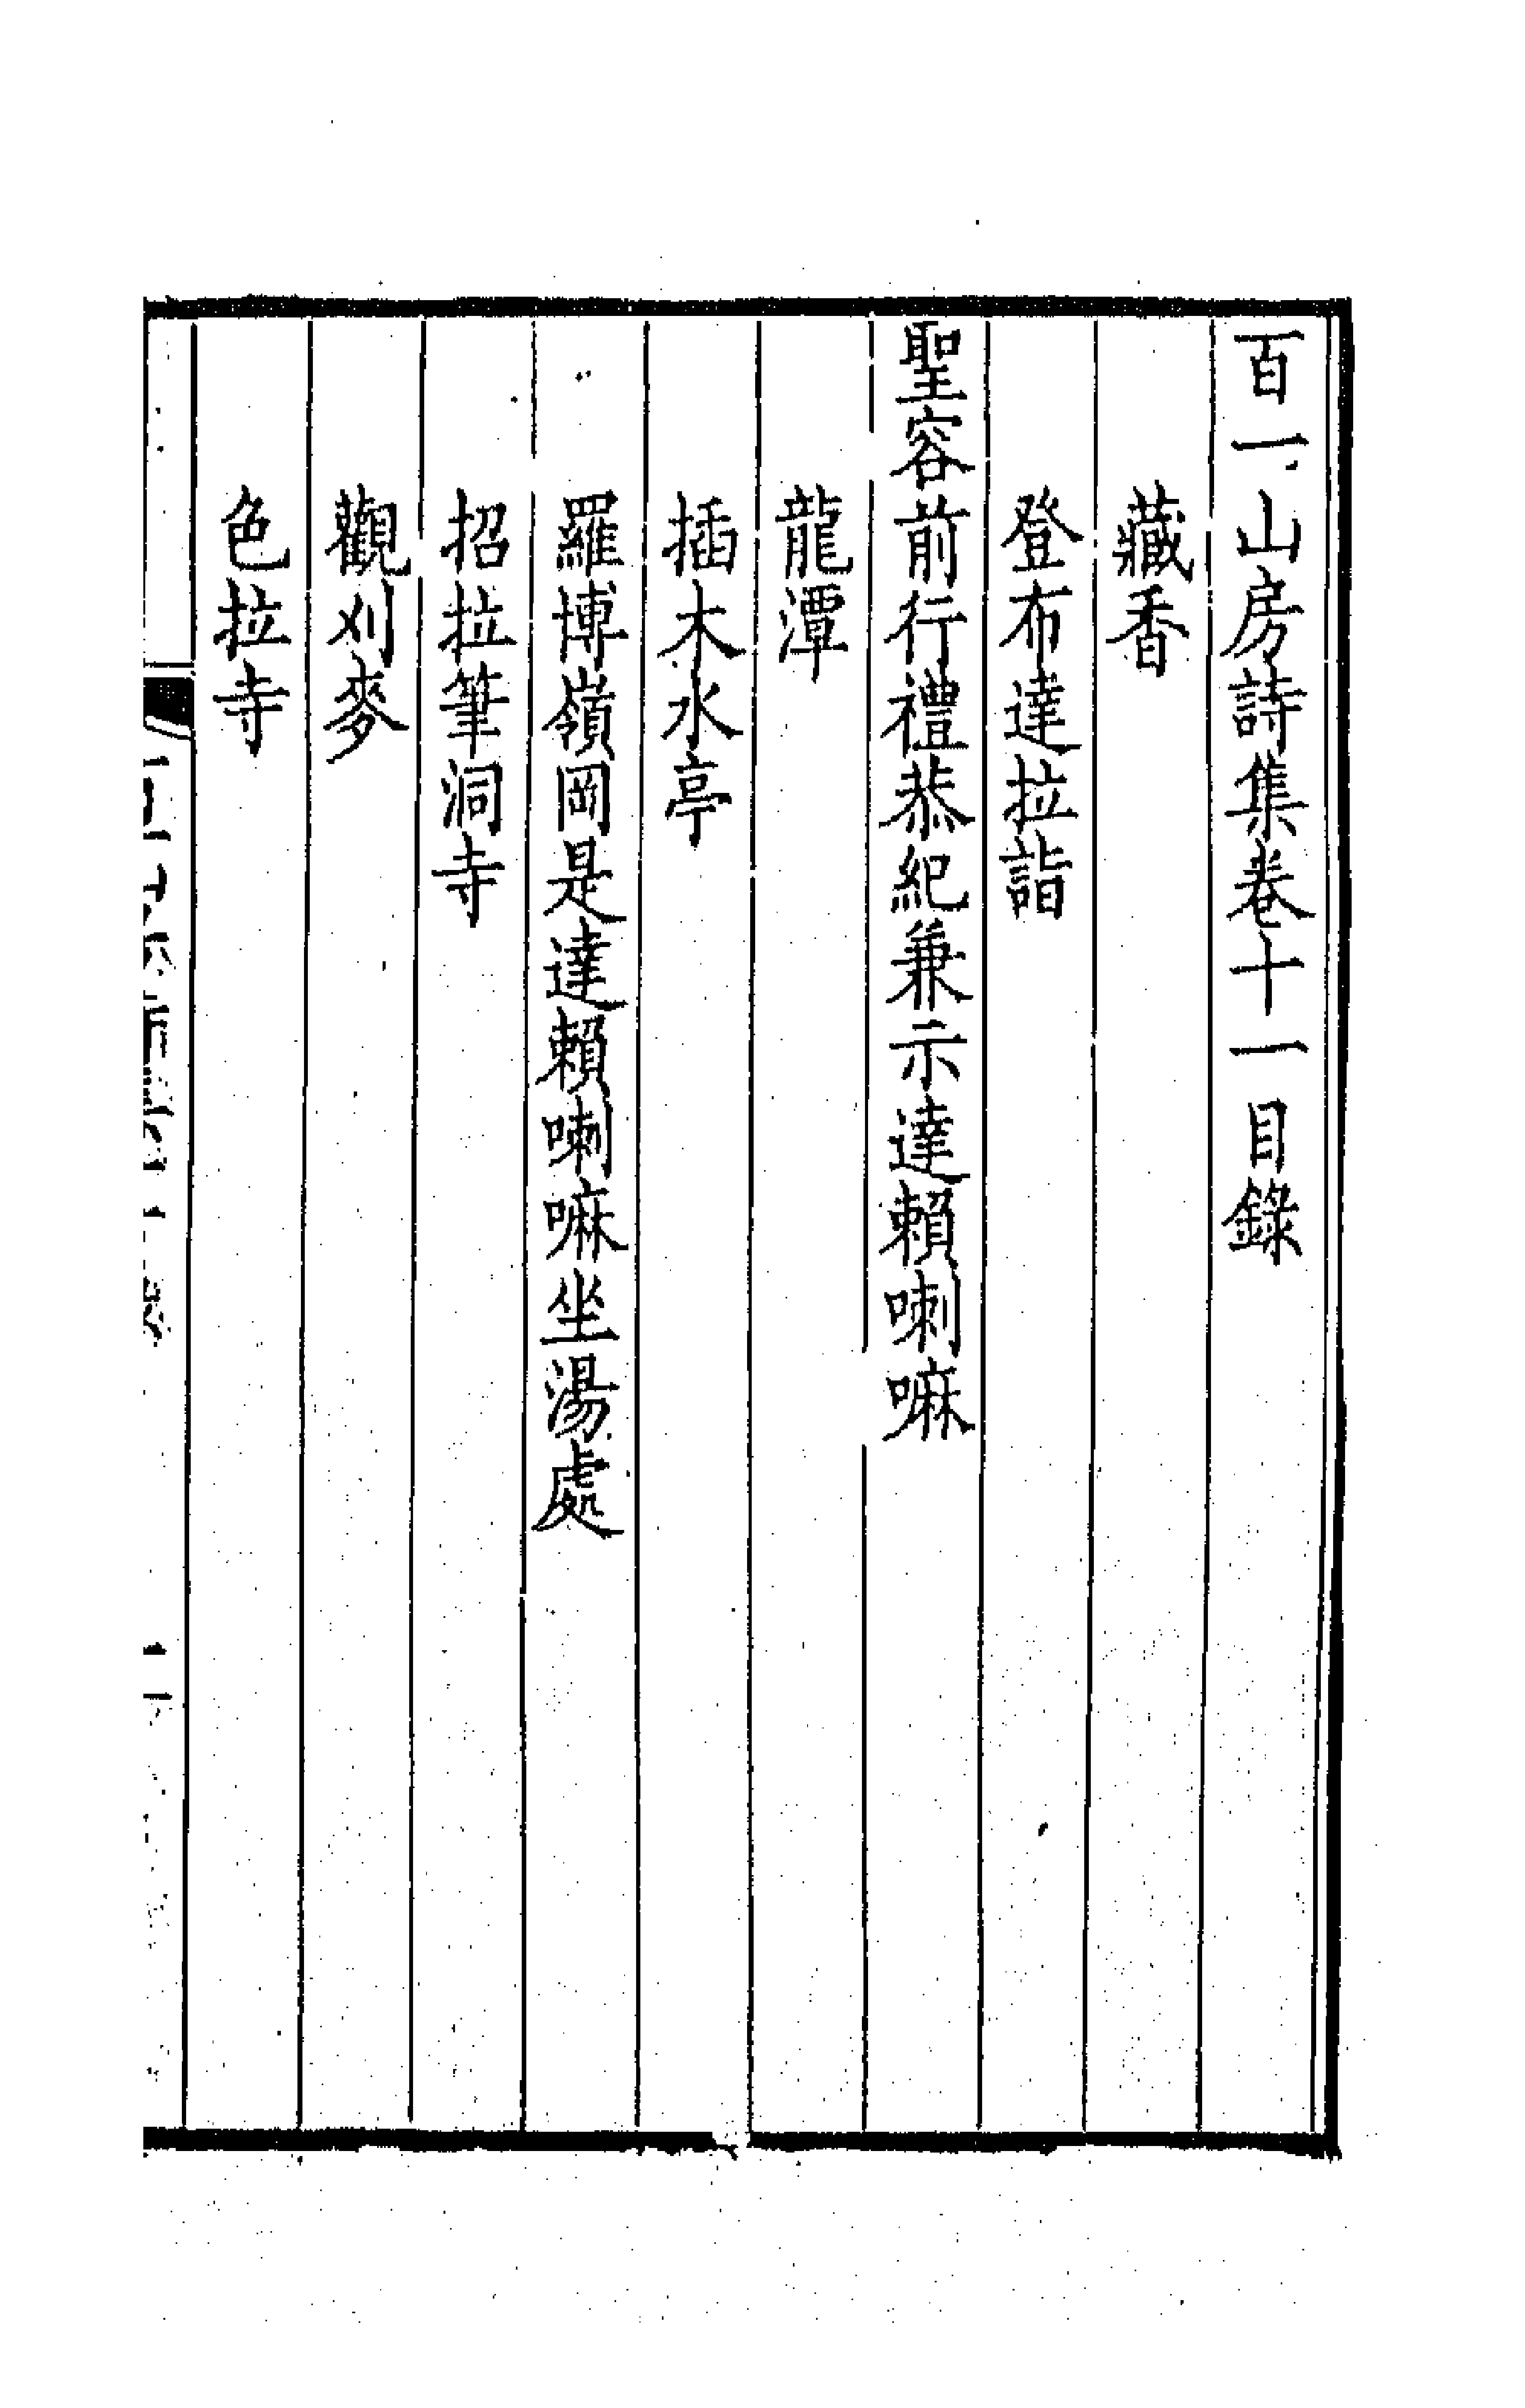 百一山房詩集卷十一目錄
藏香
登布達拉詣
聖容前行禮恭紀兼示達賴喇嘛
龍潭
插木水亭
羅博嶺岡是達賴喇嘛坐湯處
招拉筆洞寺
觀刈麥
色拉寺